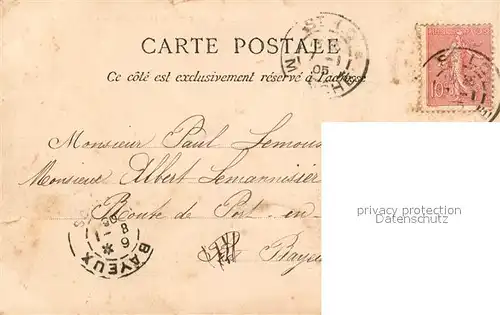 CARTE POSTALE
Ce côté est exclusivement réservé à l'adresse
10
05
Monsieur Paul Lemous
Monsieur Albert Lemannissier
Route de Port-en
Bayeu
privacy protection
datenschutz
BAYEUX